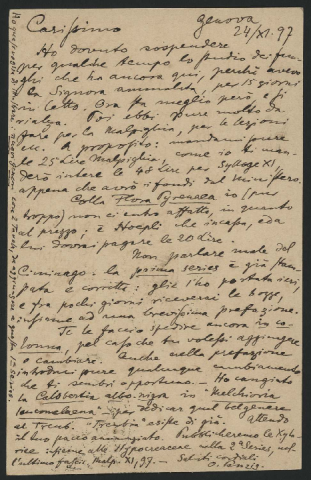 Genova
24/XI. 97
Carissimo
Ho dovuto sospendere
per qualche tempo lo studio dei fun-
ghi che ha ancora qui, perchè avevo
la Signora ammalata, per 15 giorni
in letto. Ora sta meglio però, e si
rialza. Poi ebbi pure molto da
fare per la Malpighia, per le lezioni
etc. A proposito: mandami pure
le 25 Lire Malpighia, come io ti man-
derò intere le 48 lire per Sylloge XI,
appena che avrò i fondi dal Ministero.
Colla Flora Pyrenaea io (pur
troppo) non ci entro affatto, in quanto
al prezzo; è Hoepli che incassa, e a
lui dovrai pagare le 20 Lire.
Non parlare male del
: la prima series è già stam-
pata e corretta: gliel'ho portata ieri,
e fra pochi giorni riceverai le bozze,
insieme ad una brevissima prefazione.
Te le faccio spedire ancora in co-
lonna, pel caso che tu volessi aggiungere
o cambiare. Anche nella prefazione
introduci pure qualunque cambiamento
che ti sembri opportuno. — Ho cangiato
la Calostertia albo-nigra in "Melchioria
leucomelaena" per dedicar quel bel genere
al Treub. "Treubia" esiste di già. Attendo
il tuo pacco annunziato. Pubblicheremo le
insieme alle Hypocreaceae nella 2ª Series, nel-
l'ultimo fascic. Malp. XI, 97. — Saluti cordiali
O. Penzig